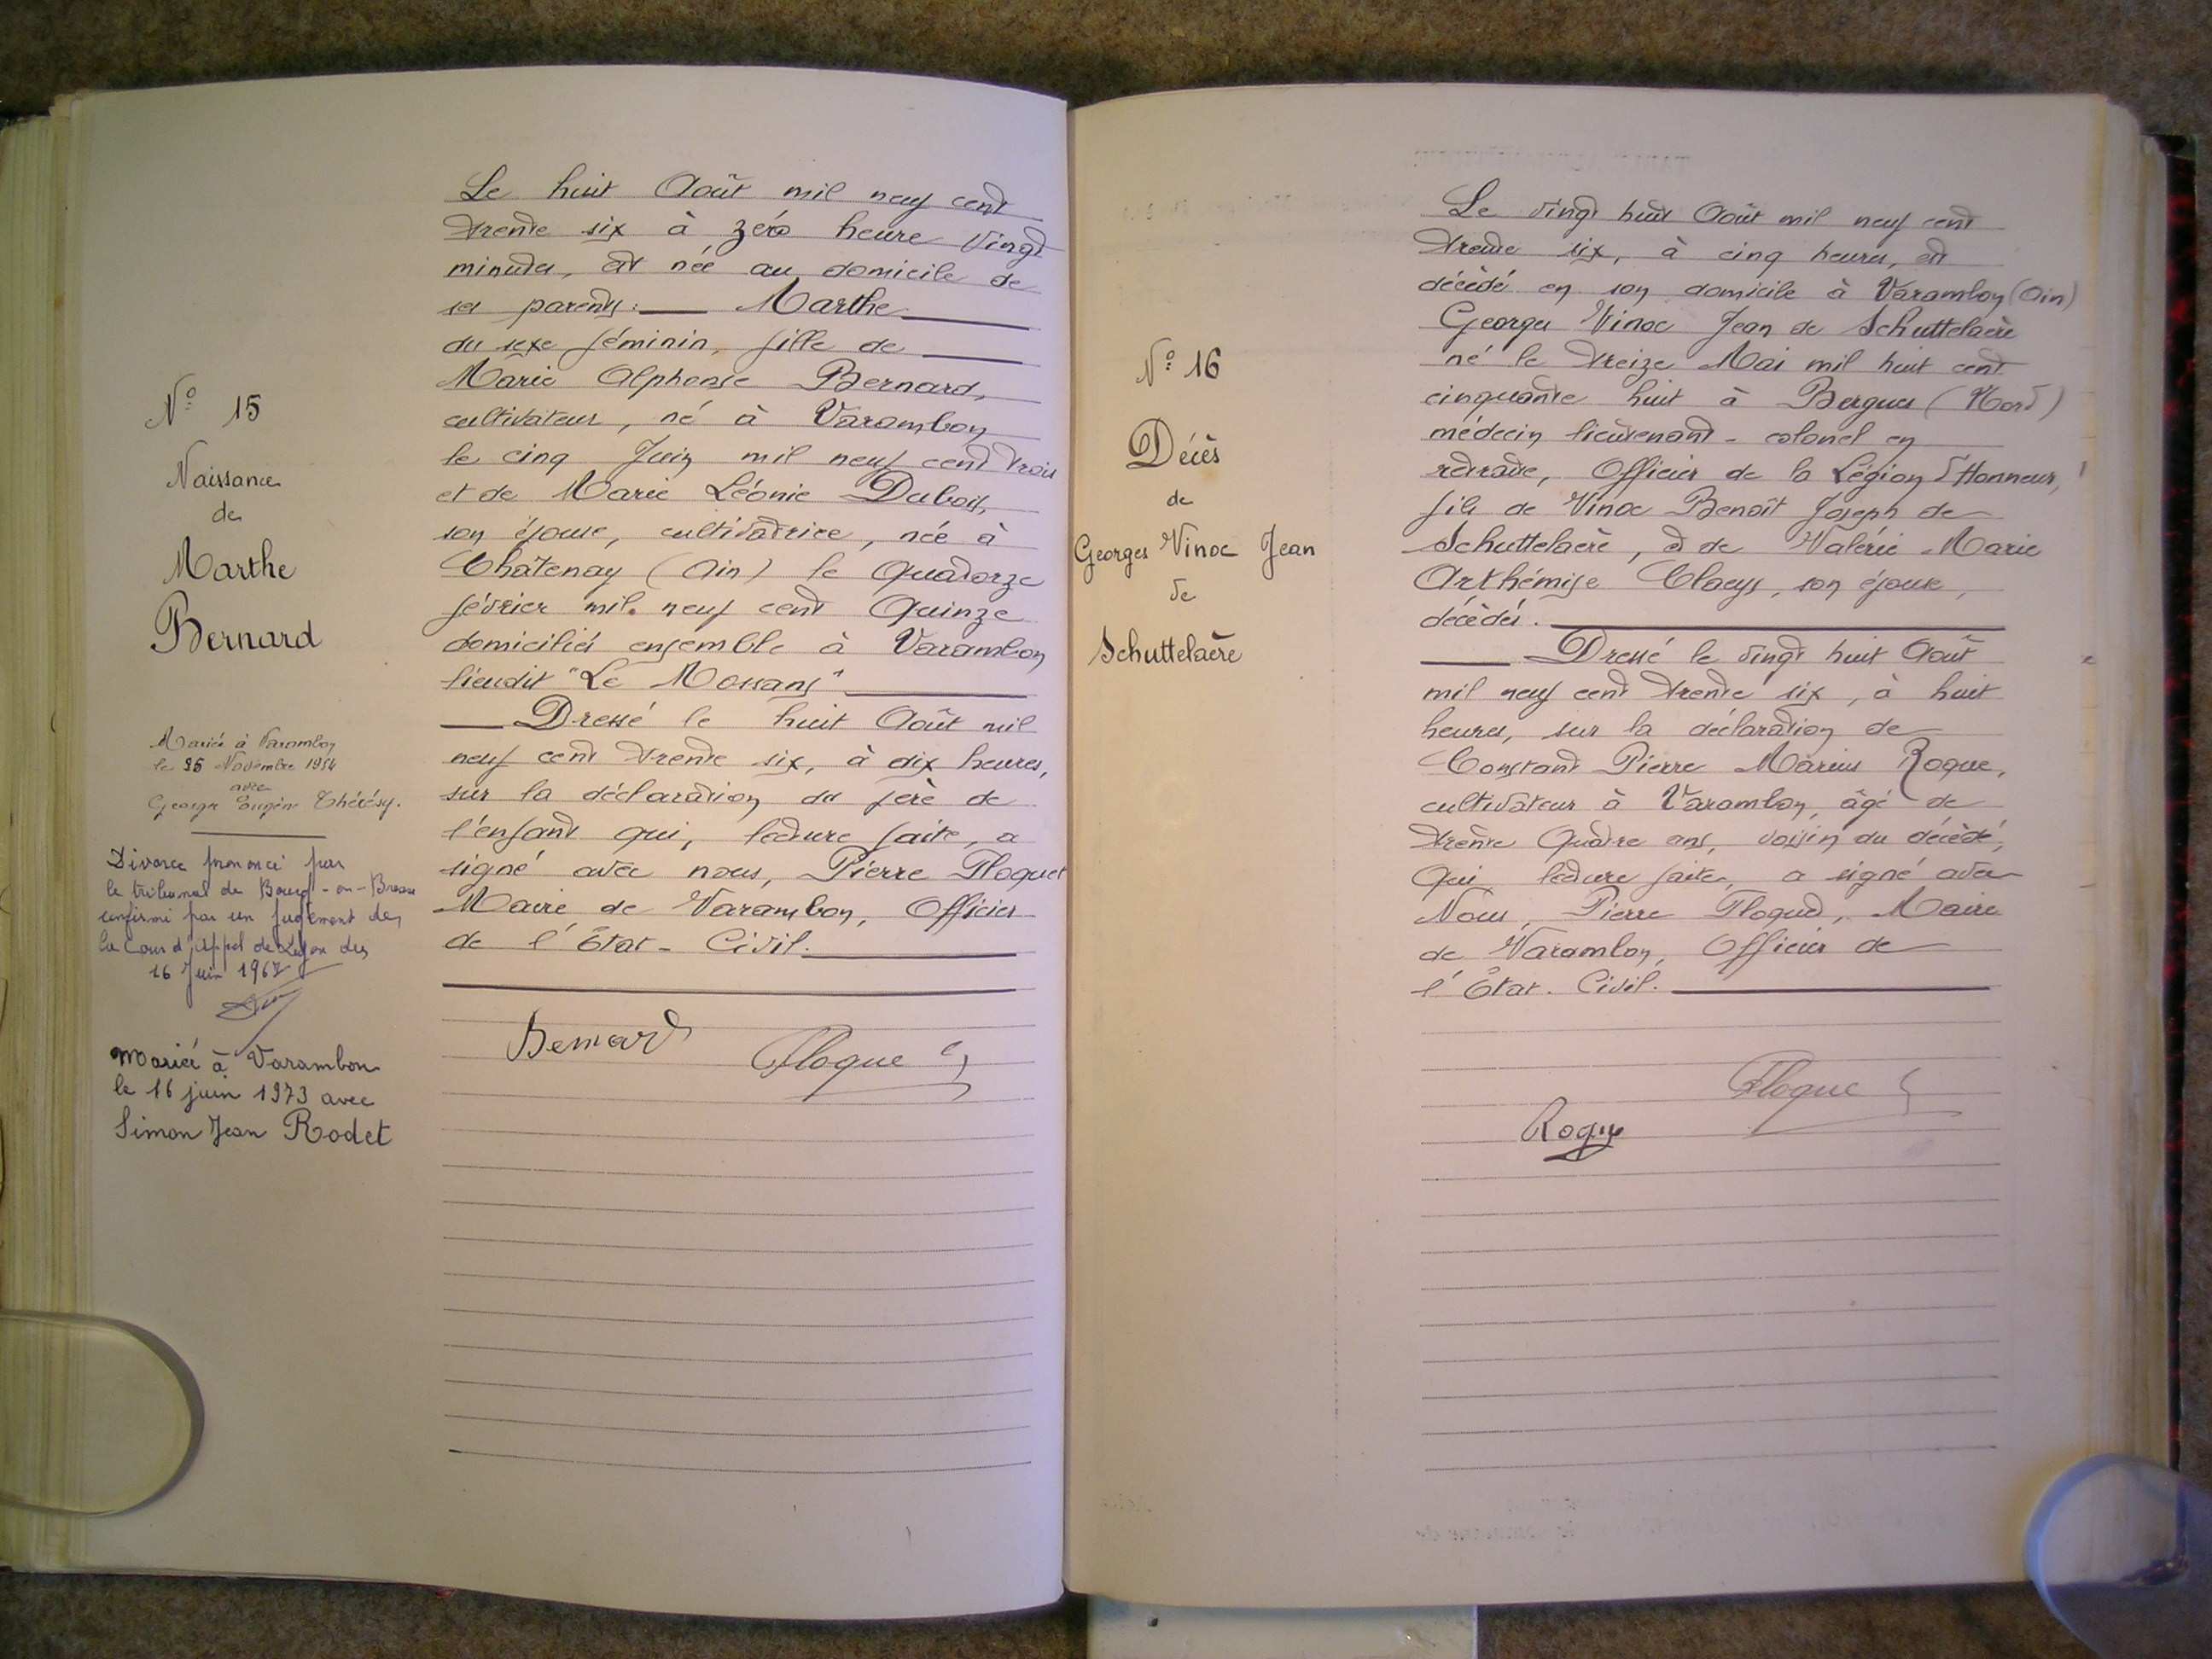 N° 15
Naissance
de
Marthe
Bernard
Mariée à Varambon
le 25 Novembre 1954
avec
Georges Eugène Thérésy.
Divorce prononcé par
le tribunal de Bourg-en-Bresse
confirmé par un jugement de
la Cour d'Appel de Lyon du
16 Juin 1967
Mariée à Varambon
le 16 juin 1973 avec
Simon Jean Rodet
Le huit Août mil neuf cent
trente six à zéro heure vingt
minutes, est née au domicile de
ses parents : Marthe
du sexe féminin, fille de
Marie Alphonse Bernard,
cultivateur, né à Varambon
le cinq Juin mil neuf cent trois
et de Marie Léonie Dubois,
son épouse, cultivatrice, née à
Châtenay (Ain) le Quatorze
février mil neuf cent Quinze
domiciliés ensemble à Varambon
lieudit "Le Mossans"
Dressé le huit Août mil
neuf cent trente six, à dix heures,
sur la déclaration du père de
l'enfant qui, lecture faite, a
signé avec nous, Pierre Floquet
Maire de Varambon, Officier
de l'État-Civil.
Bernard Floquet
N° 16
Décès
de
Georges Vinoc Jean
de
Schuttelaère
Le vingt huit Août mil neuf cent
trente six, à cinq heures, est
décédé en son domicile à Varambon (Ain)
Georges Vinoc Jean de Schuttelaère
né le treize Mai mil huit cent
cinquante huit à Bergues (Nord)
médecin lieutenant-colonel en
retraite, Officier de la Légion d'Honneur,
fils de Vinoc Benoît Joseph de
Schuttelaère, et de Valérie Marie
Arthémise Claeys, son épouse,
décédés.
Dressé le vingt huit Août
mil neuf cent trente six, à huit
heures, sur la déclaration de
Constant Pierre Marius Roque,
cultivateur à Varambon, âgé de
trente Quatre ans, voisin du décédé,
Qui lecture faite, a signé avec
Nous, Pierre Floquet, Maire
de Varambon, Officier de
l'État-Civil.
Floquet
Roque